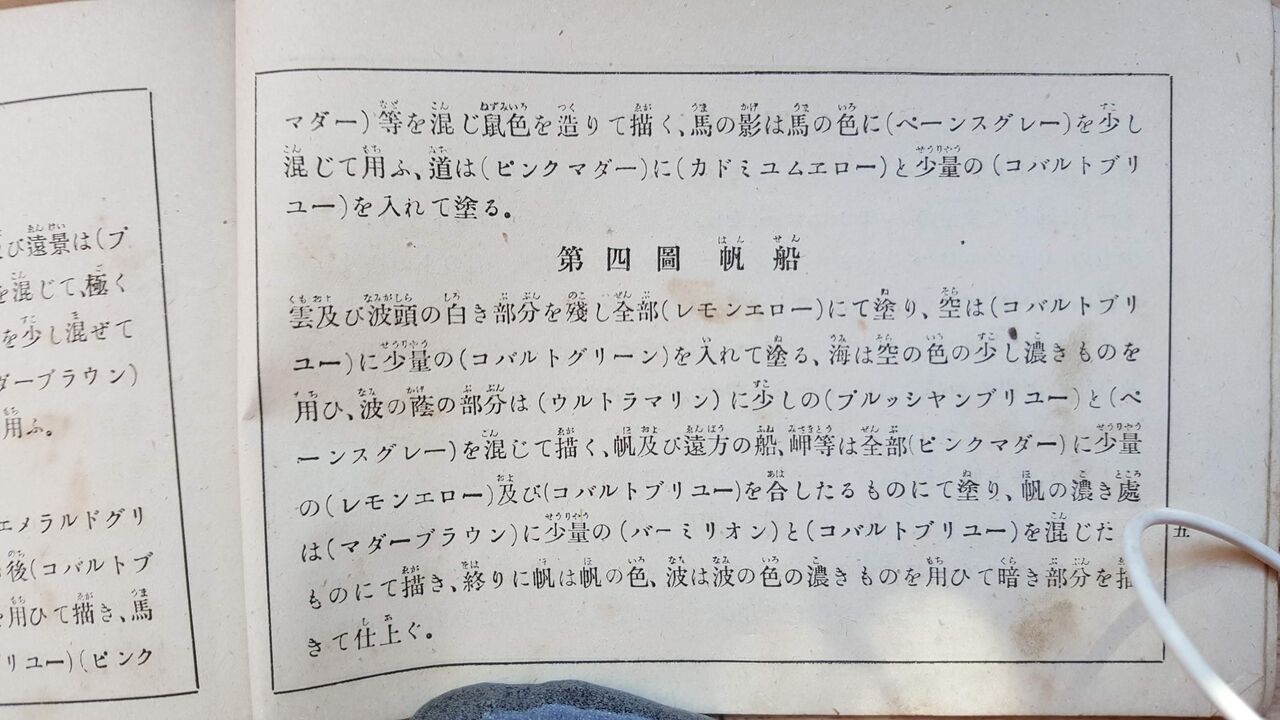 び遠景は(プ
を混じて、極く
を少し混ぜて
ダーブラウン)
用ふ。
エメラルドグリ
後(コバルトブ
を用ひて描き、馬
リユー)(ピンク
マダー)等を混じ鼠色を造りて描く、馬の影は馬の色に(ペーンスグレー)を少し
混じて用ふ、道は(ピンクマダー)に(カドミユムヱロー)と少量の(コバルトブリ
ユー)を入れて塗る。
第四圖 帆船
雲及び波頭の白き部分を殘し全部(レモンエロー)にて塗り、空は(コバルトブリ
ユー)に少量の(コバルトグリーン)を入れて塗る、海は空の色の少し濃きものを
用ひ、波の蔭の部分は(ウルトラマリン)に少しの(プルッシヤンブリユー)と(ペ
ーンスグレー)を混じて描く、帆及び遠方の船、岬等は全部(ピンクマダー)に少量
の(レモンエロー)及び(コバルトブリユー)を合したるものにて塗り、帆の濃き處
は(マダーブラウン)に少量の(バーミリオン)と(コバルトブリユー)を混じた
ものにて描き、終りに帆は帆の色、波は波の色の濃きものを用ひて暗き部分を描
きて仕上ぐ。
五